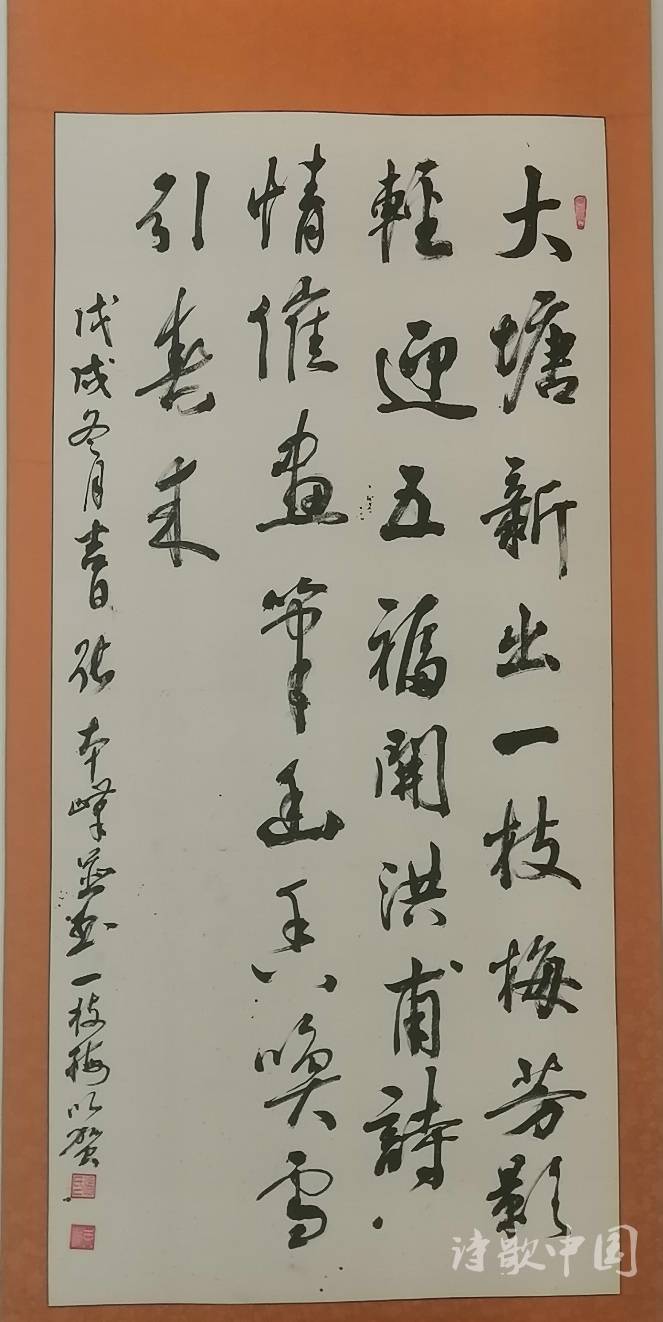 大塘新出一枝梅芳影
輕迎五福開洪甫詩
情催畫筆幽香喚雪
引春來
戊戌冬月吉日张本峰並畫一枝梅以賀
诗歌中国